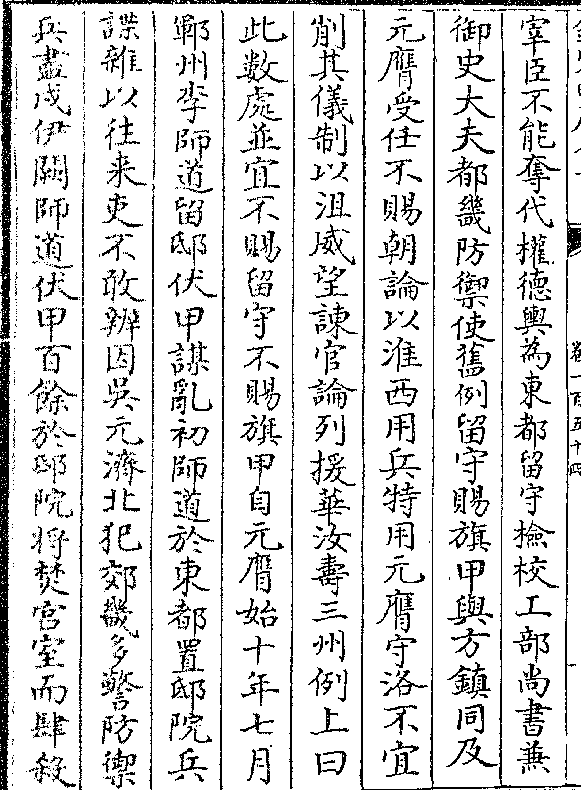 宰臣不能奪代權德輿為東都留守檢校工部尚書兼
御史大夫都畿防禦使舊例留守賜旗甲與方鎮同及
元膺受任不賜朝論以淮西用兵特用元膺守洛不宜
削其儀制以沮威望諫官論列援華汝壽三州例上曰
此数處並宜不賜留守不賜旗甲自元膺始十年七月
鄆州李師道留邸伏甲謀亂初師道於東都置邸院兵
諜雜以往来吏不敢辨因吳元濟北犯郊畿多警防禦
兵盡戍伊闕師道伏甲百餘於邸院将焚宫室而肆殺